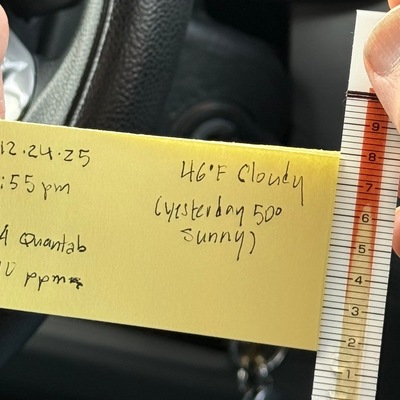 12.24.25
:55 pm
A Quantab
0 ppm
46°F Cloudy
(yesterday 50°
Sunny)
9
8
7
6
5
4
3
2
1